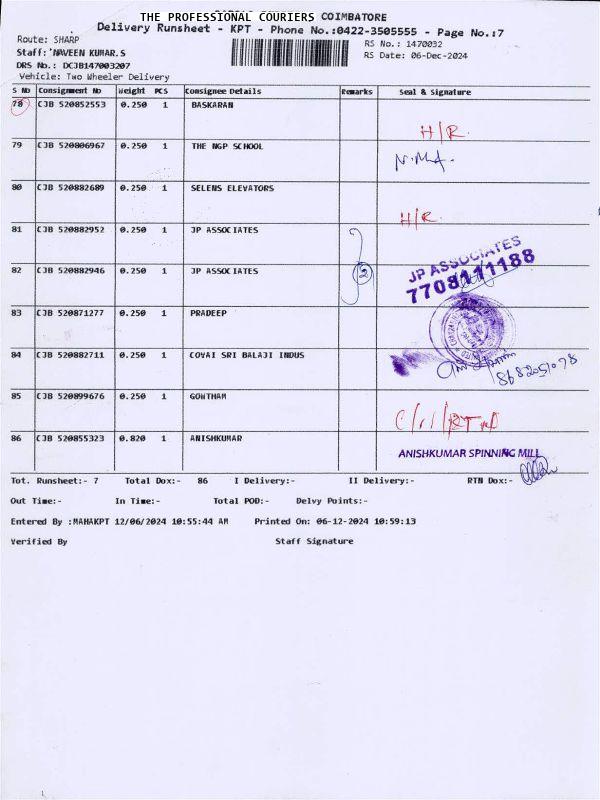 THE PROFESSIONAL COURIERS COIMBATORE
Delivery Runsheet - KPT - Phone No.:0422-3505555 - Page No.:7
Route: SHARP
RS No.: 1470032
Staff: NAVEEN KUMAR.S
RS Date: 06-Dec-2024
DRS No.: DCJB147003207
Vehicle: Two Wheeler Delivery
S No Consignment No Weight PCS Consignee Details Remarks Seal & Signature
78 CJB 520852553 0.250 1 BASKARAN
H/R.
79 CJB 520806967 0.250 1 THE NGP SCHOOL
80 CJB 520882689 0.250 1 SELENS ELEVATORS
H/R.
81 CJB 520882952 0.250 1 JP ASSOCIATES
82 CJB 520882946 0.250 1 JP ASSOCIATES 2
JP ASSOCIATES
7708111188
83 CJB 520871277 0.250 1 PRADEEP
84 CJB 520882711 0.250 1 COVAI SRI BALAJI INDUS
85 CJB 520899676 0.250 1 GOWTHAM
86 CJB 520855323 0.820 1 ANISHKUMAR
ANISHKUMAR SPINNING MILL
Tot. Runsheet:- 7 Total Dox:- 86 I Delivery:- II Delivery:- RTN Dox:-
Out Time:- In Time:- Total POD:- Delvy Points:-
Entered By :MAHAKPT 12/06/2024 10:55:44 AM Printed On: 06-12-2024 10:59:13
Verified By Staff Signature